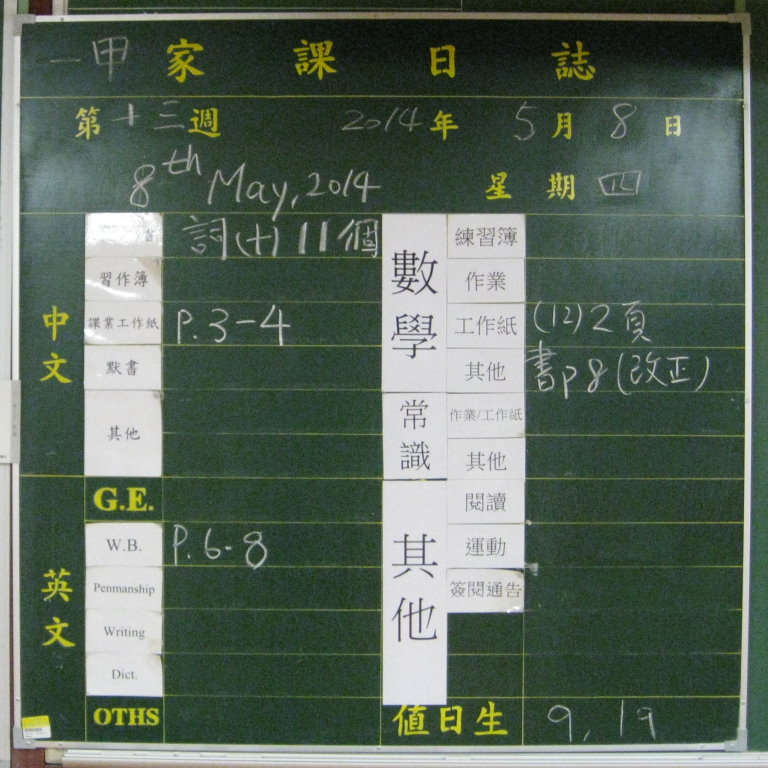 一甲家課日誌
第十三週 2014年5月8日
8th May, 2014 星期四
中文
詞(十)11個
習作簿
課業工作紙 P.3-4
默書
其他
英文
G.E.
W.B. P.6-8
Penmanship
Writing
Dict.
OTHS
數學
練習簿
作業
工作紙 (12)2頁
其他 書p8(改正)
常識
作業/工作紙
其他
其他
閱讀
運動
簽閱通告
值日生 9, 19